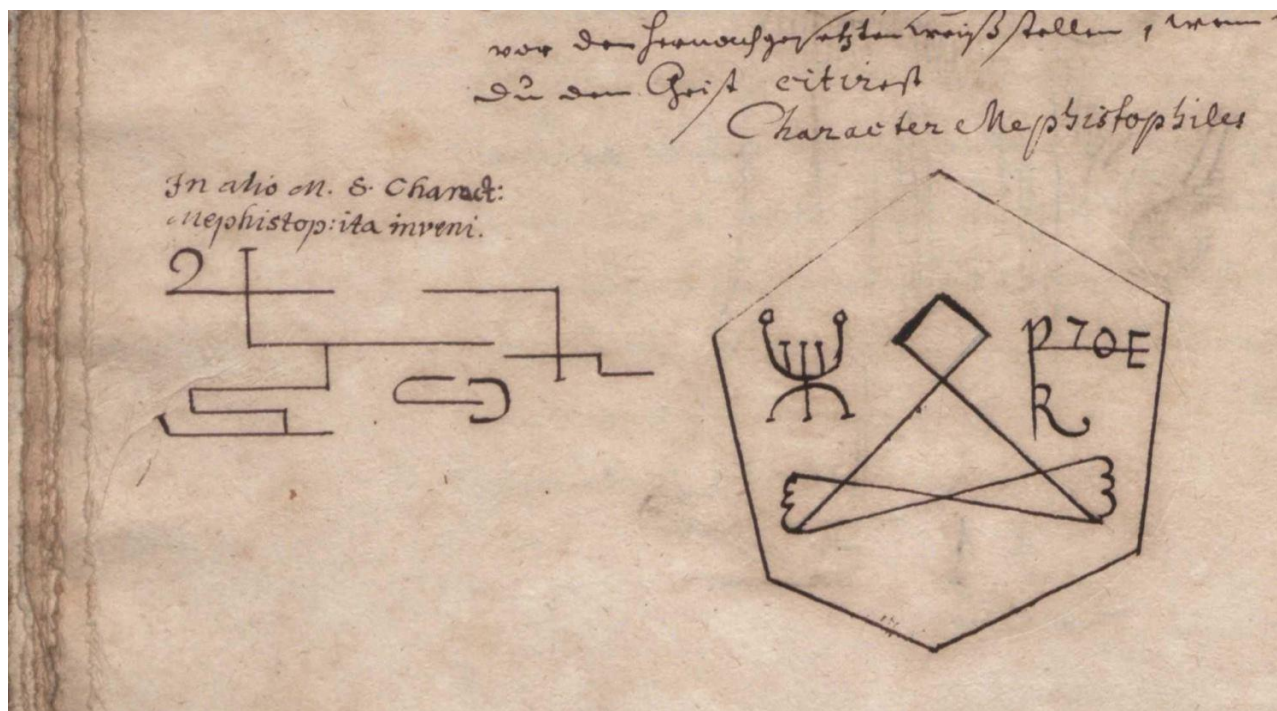 vor den hernachgesetzten Kreiß stellen, wenn
du den Geist citirest
Character Mephistophiles
In alio M. S. Charact:
Mephistop: ita inveni.
P 7 0 E
R